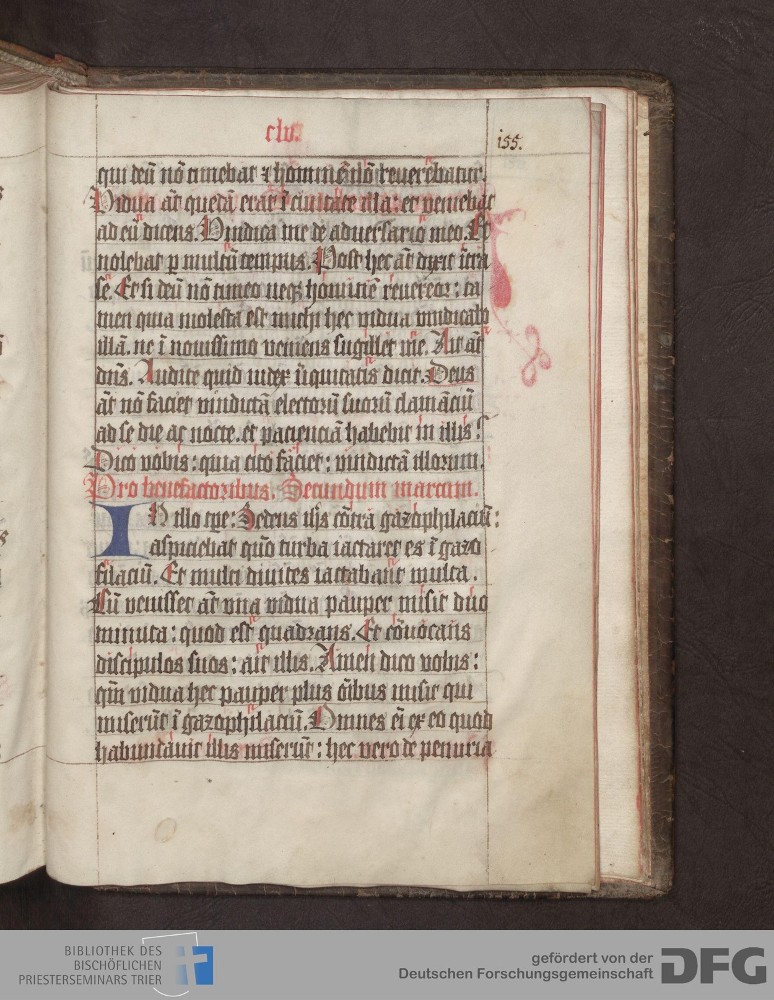 clv.
155.
qui deū nō timebat ⁊ hominē nō reuerebatur.
Vidua āt quedā erat ī ciuitate illa: et veniebat
ad eū dicens. Vindica me de aduersario meo. Et
nolebat p multū tempus. Post hec āt dixit īt̄ra
se. Et si deū nō timeo neqȝ hominē reuereor: ta
men quia molesta est michi hec vidua vindicabo
illā. ne ī nouissimo veniens sugillet me. Ait āt
dn̄s. Audite quid iudex īiquitatis dicit. Deus
āt nō faciet vindictā electorū suorū clamāciū
ad se die ac nocte. et pacienciā habebit in illis?
Dico vobis: quia cito faciet: vindictā illorum.
Pro benefactoribus. Secundum marcum.
IN illo tp̄e: Sedens ih̄s cōtra gazophilaciū:
aspiciebat quō turba iactaret es ī gazo
filaciū. Et multi diuites iactabant multa.
Cū venisset āt vna vidua pauper misit duo
minuta: quod est quadrans. Et cōuocans
discipulos suos: ait illis. Amen dico vobis:
qm̄ vidua hec pauper plus ōibus misit qui
miserūt ī gazophilaciū. Omnes ei̅ ex eo quod
habundauit illis miserūt: hec vero de penuria
BIBLIOTHEK DES
BISCHÖFLICHEN
PRIESTERSEMINARS TRIER
gefördert von der
Deutschen Forschungsgemeinschaft DFG